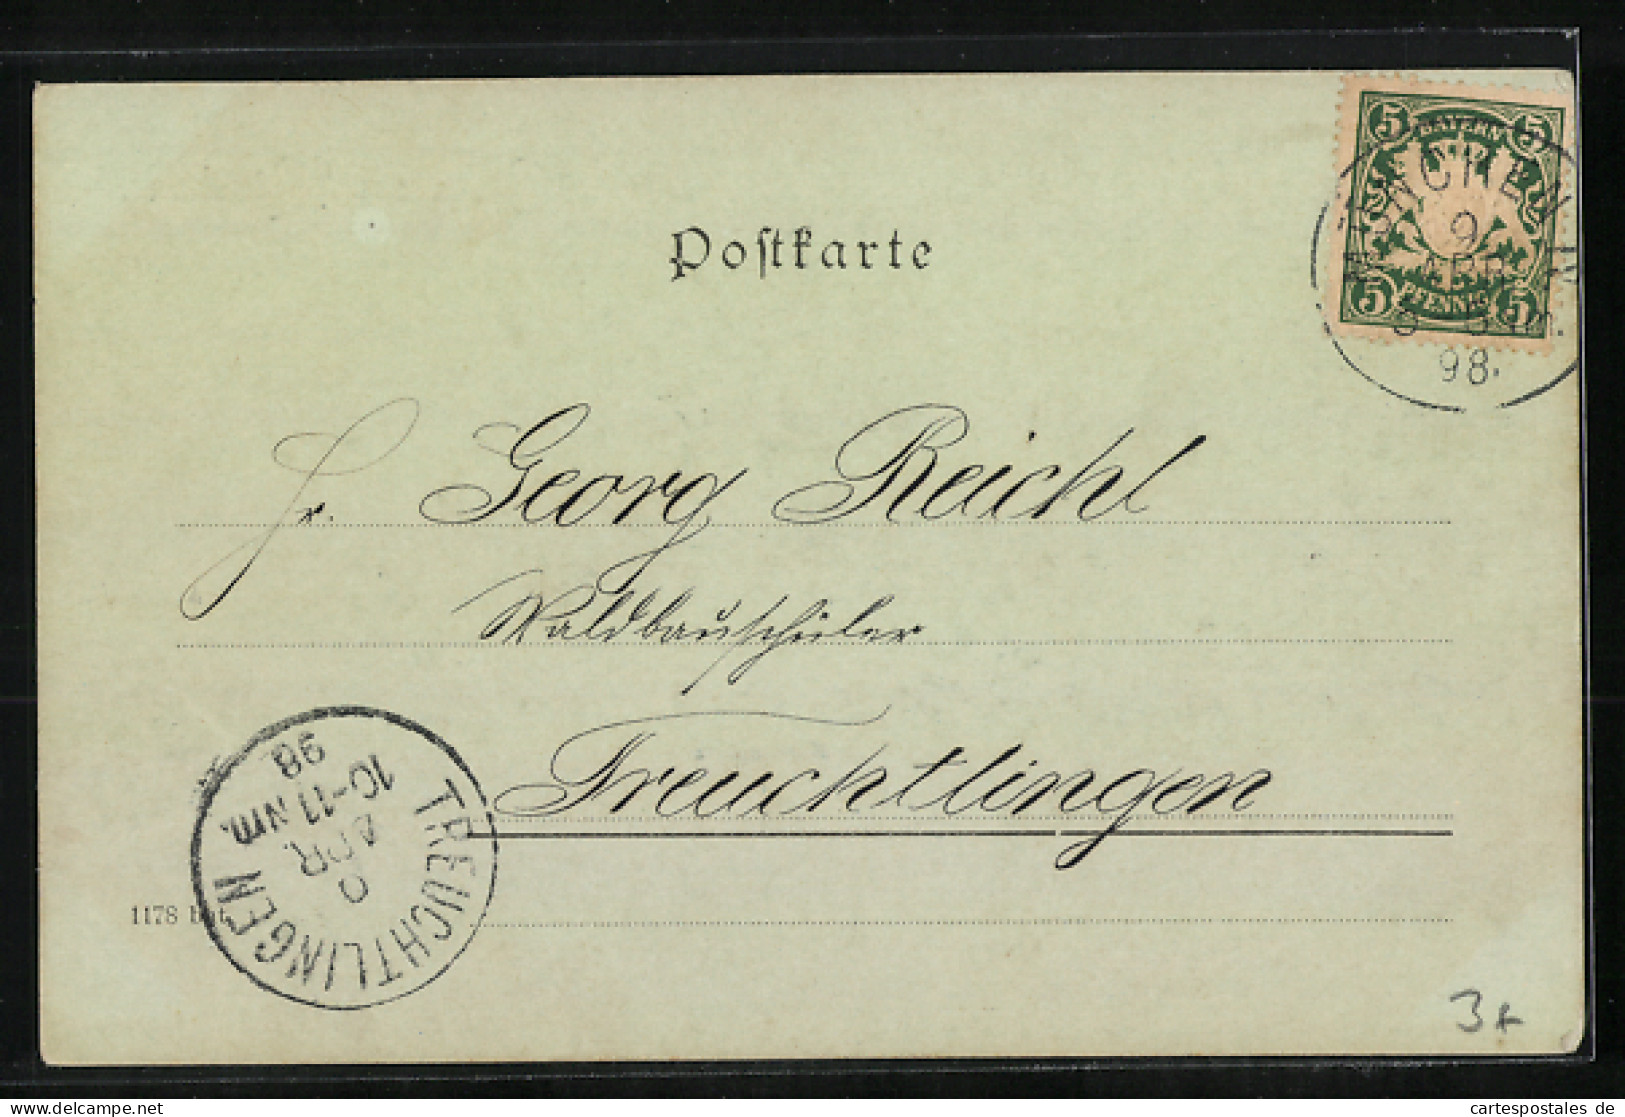 Postkarte
BAYERN
5 5
PFENNIG
5 5
MÜNCHEN IV
9
APR
98.
Hr. Georg Reichl
Waldbauschüler
Treuchtlingen
TREUCHTLINGEN
APR.
10-11 Nm.
98
1178
3
cartespostales de